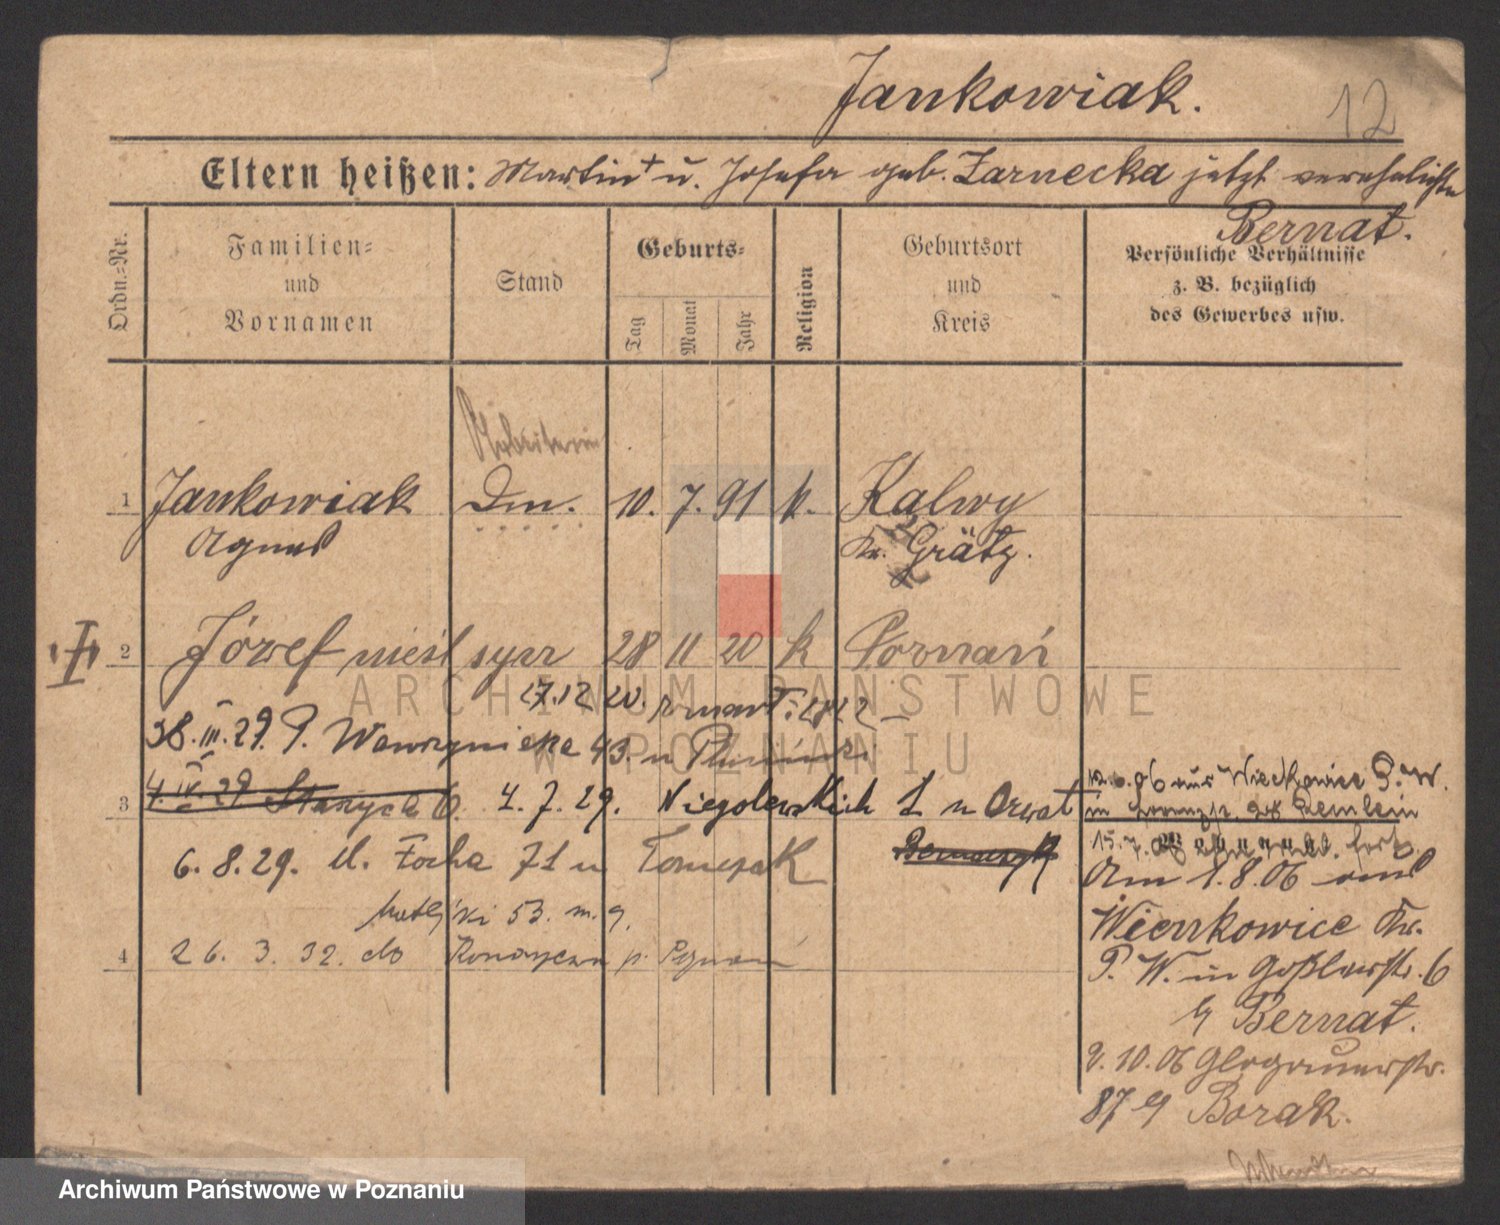 Jankowiak.
12
Eltern heißen: Martin + u. Josefa geb. Zarnecka jetzt verehelichte
Bernat.
Ordn.-Nr.
Familien-
und
Vornamen
Stand
Geburts-
Tag
Monat
Jahr
Religion
Geburtsort
und
Kreis
Persönliche Verhältnisse
z. B. bezüglich
des Gewerbes usw.
Arbeiterin
1 Jankowiak Dm. 10. 7. 91 k. Kalwy
Agnes Kr. Grätz.
I
2 Józef nieśl syn 28 11 20 k Poznań
17.12 20. zmarł:
ARCHIWUM PAŃSTWOWE
W POZNANIU
III. 29. P. Wawrzyniaka 43. u
3 4. IV. 29 6. 4. 7. 29. Niegolewskich 1 u
6. 8. 29. ul. Focha 71 u Tomczak
Matejki 53. m. 9.
4 26. 3. 32. do p. Poznań
12.6.06 aus P. W.
in
15.7.06
Am 1.8.06 aus
Wienkowice Kr.
P. W. in Goßlerstr. 6
b/ Bernat.
2.10.06 Glogauerstr.
87 b/ Borak.
Archiwum Państwowe w Poznaniu